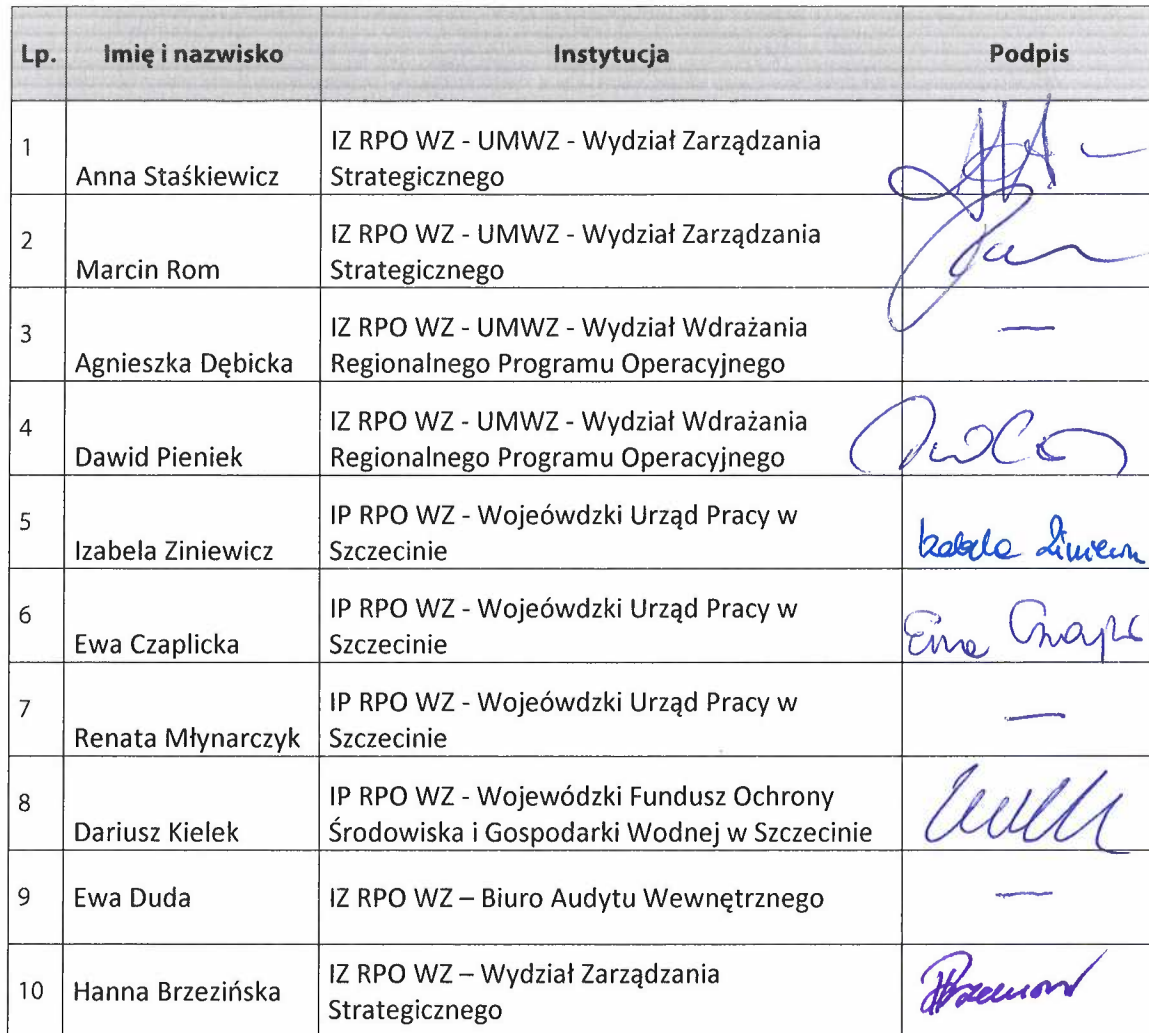 Lp. Imię i nazwisko Instytucja Podpis
1 Anna Staśkiewicz IZ RPO WZ - UMWZ - Wydział Zarządzania
Strategicznego
2 Marcin Rom IZ RPO WZ - UMWZ - Wydział Zarządzania
Strategicznego
3 Agnieszka Dębicka IZ RPO WZ - UMWZ - Wydział Wdrażania
Regionalnego Programu Operacyjnego —
4 Dawid Pieniek IZ RPO WZ - UMWZ - Wydział Wdrażania
Regionalnego Programu Operacyjnego
5 Izabela Ziniewicz IP RPO WZ - Wojeówdzki Urząd Pracy w
Szczecinie
6 Ewa Czaplicka IP RPO WZ - Wojeówdzki Urząd Pracy w
Szczecinie Ewa
7 Renata Młynarczyk IP RPO WZ - Wojeówdzki Urząd Pracy w
Szczecinie —
8 Dariusz Kielek IP RPO WZ - Wojewódzki Fundusz Ochrony
Środowiska i Gospodarki Wodnej w Szczecinie
9 Ewa Duda IZ RPO WZ – Biuro Audytu Wewnętrznego —
10 Hanna Brzezińska IZ RPO WZ – Wydział Zarządzania
Strategicznego